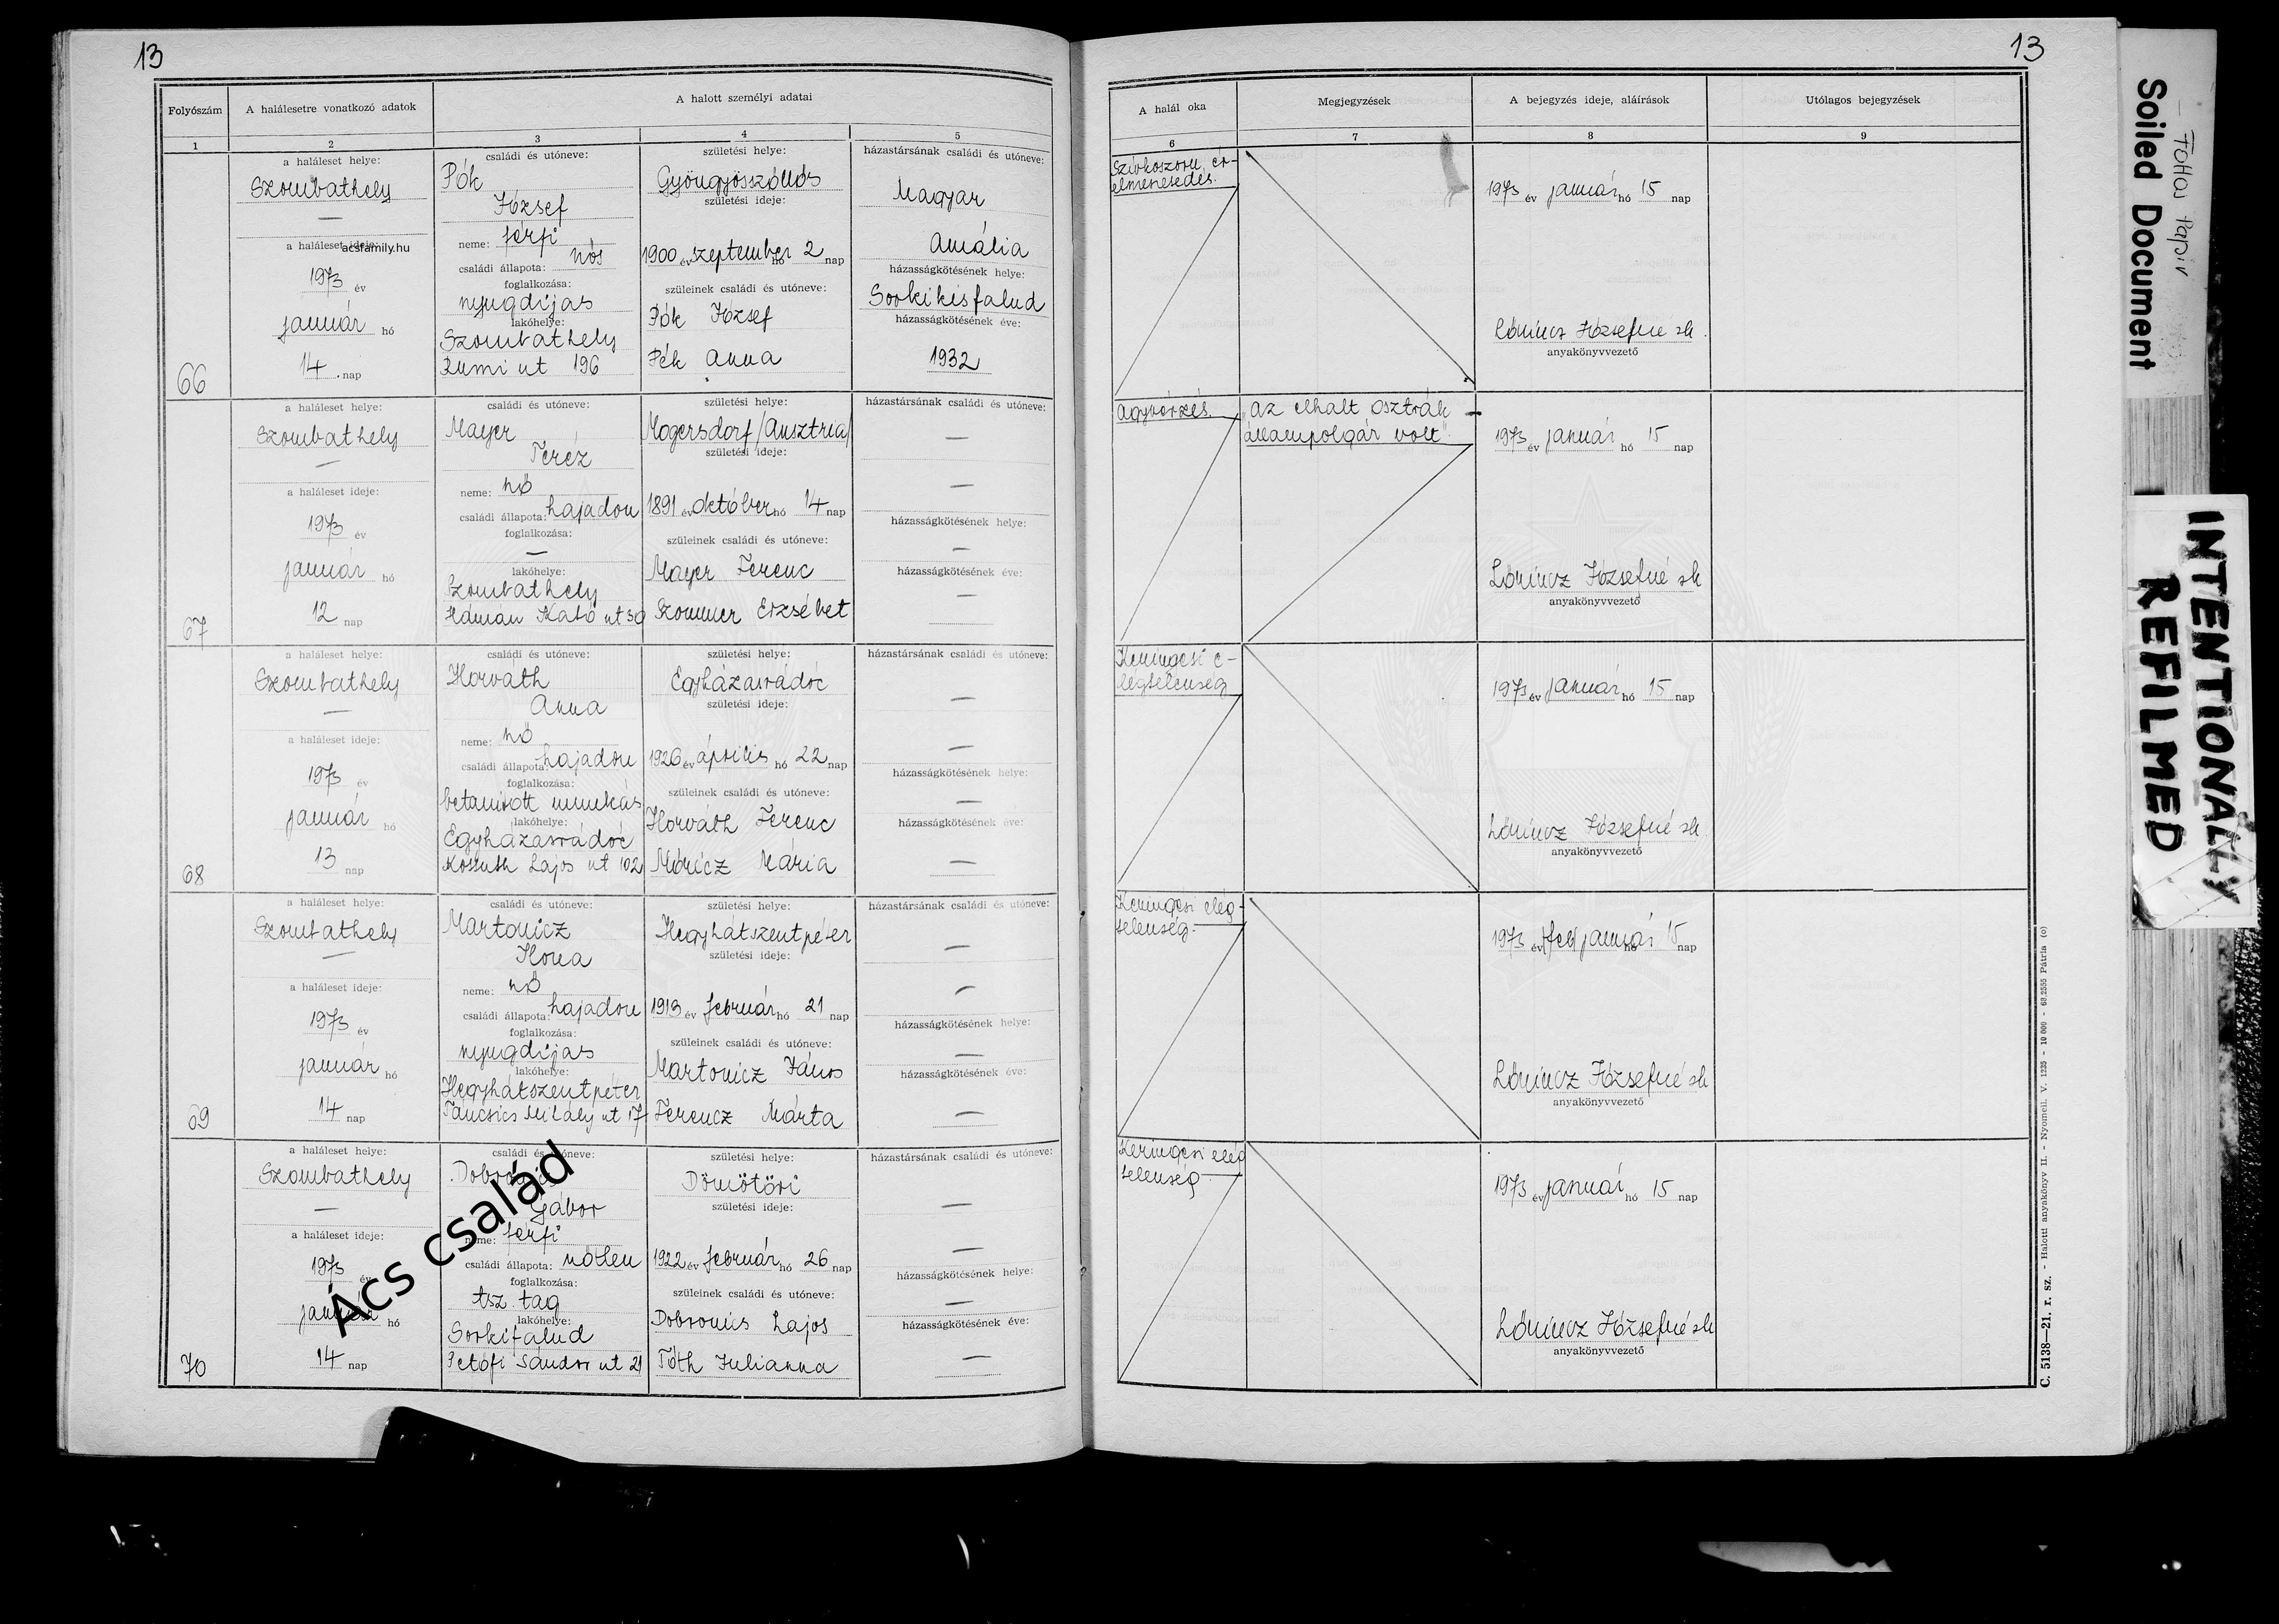 13
13
Folyószám
A halálesetre vonatkozó adatok
A halott személyi adatai
A halál oka
Megjegyzések
A bejegyzés ideje, aláírások
Utólagos bejegyzések
1 2 3 4 5 6 7 8 9
66
a haláleset helye:
Szombathely
—
a haláleset ideje:
acsfamily.hu
1973 év
január hó
14 nap
családi és utóneve:
Pók
József
neme: férfi
családi állapota: nős
foglalkozása:
nyugdíjas
lakóhelye:
Szombathely
Rumi ut 196
születési helye:
Gyöngyösszőllős
születési ideje:
1900 év szeptember hó 2 nap
szüleinek családi és utóneve:
Pók József
Pék Anna
házastársának családi és utóneve:
Magyar
Amália
házasságkötésének helye:
Sorkikisfalud
házasságkötésének éve:
1932
Szívkoszorú ér-
elmeszesedés.
1973 év január hó 15 nap
Lőrincz Józsefné sk.
anyakönyvvezető
67
a haláleset helye:
Szombathely
—
a haláleset ideje:
1973 év
január hó
12 nap
családi és utóneve:
Mayer
Teréz
neme: nő
családi állapota: hajadon
foglalkozása:
—
lakóhelye:
Szombathely
Hámán Kató ut 30
születési helye:
Mogersdorf /Ausztria/
születési ideje:
1891 év október hó 14 nap
szüleinek családi és utóneve:
Mayer Ferenc
Szommer Erzsébet
házastársának családi és utóneve:
—
—
házasságkötésének helye:
—
házasságkötésének éve:
—
Agyvérzés.
„Az elhalt osztrák
állampolgár volt".
1973 év január hó 15 nap
Lőrincz Józsefné sk
anyakönyvvezető
68
a haláleset helye:
Szombathely
—
a haláleset ideje:
1973 év
január hó
13 nap
családi és utóneve:
Horváth
Anna
neme: nő
családi állapota: hajadon
foglalkozása:
betanitott munkás
lakóhelye:
Egyházasrádóc
Kossuth Lajos ut 102
születési helye:
Egyházasrádóc
születési ideje:
1926 év április hó 22 nap
szüleinek családi és utóneve:
Horváth Ferenc
Móricz Mária
házastársának családi és utóneve:
—
—
házasságkötésének helye:
—
házasságkötésének éve:
—
Keringési e-
légtelenség
1973 év január hó 15 nap
Lőrincz Józsefné sk.
anyakönyvvezető
69
a haláleset helye:
Szombathely
—
a haláleset ideje:
1973 év
január hó
14 nap
családi és utóneve:
Martonicz
Ilona
neme: nő
családi állapota: hajadon
foglalkozása:
nyugdíjas
lakóhelye:
Hegyhátszentpéter
Táncsics Mihály ut 17
születési helye:
Hegyhátszentpéter
születési ideje:
1913 év február hó 21 nap
szüleinek családi és utóneve:
Martonicz János
Ferencz Márta
házastársának családi és utóneve:
—
—
házasságkötésének helye:
—
házasságkötésének éve:
—
Keringési elég-
telenség.
1973 év /feb/ január hó 15 nap
Lőrincz Józsefné sk
anyakönyvvezető
70
a haláleset helye:
Szombathely
—
a haláleset ideje:
1973 év
január hó
14 nap
családi és utóneve:
Gábor
neme: férfi
családi állapota: nőtlen
foglalkozása:
tsz. tag
lakóhelye:
Sorkifalud
Petőfi Sándor ut 21
Ács család
születési helye:
Dömötöri
születési ideje:
1922 év február hó 26 nap
szüleinek családi és utóneve:
Lajos
Tóth Julianna
házastársának családi és utóneve:
—
—
házasságkötésének helye:
—
házasságkötésének éve:
—
Keringési elég
telenség.
1973 év január hó 15 nap
Lőrincz Józsefné sk
anyakönyvvezető
C. 5138—21. r. sz. - Halotti anyakönyv II. - Nyomell. V. 1235 - 10 000 - 68.2555 Pátria (o)
Soiled Document
Papir
INTENTIONALLY
REFILMED